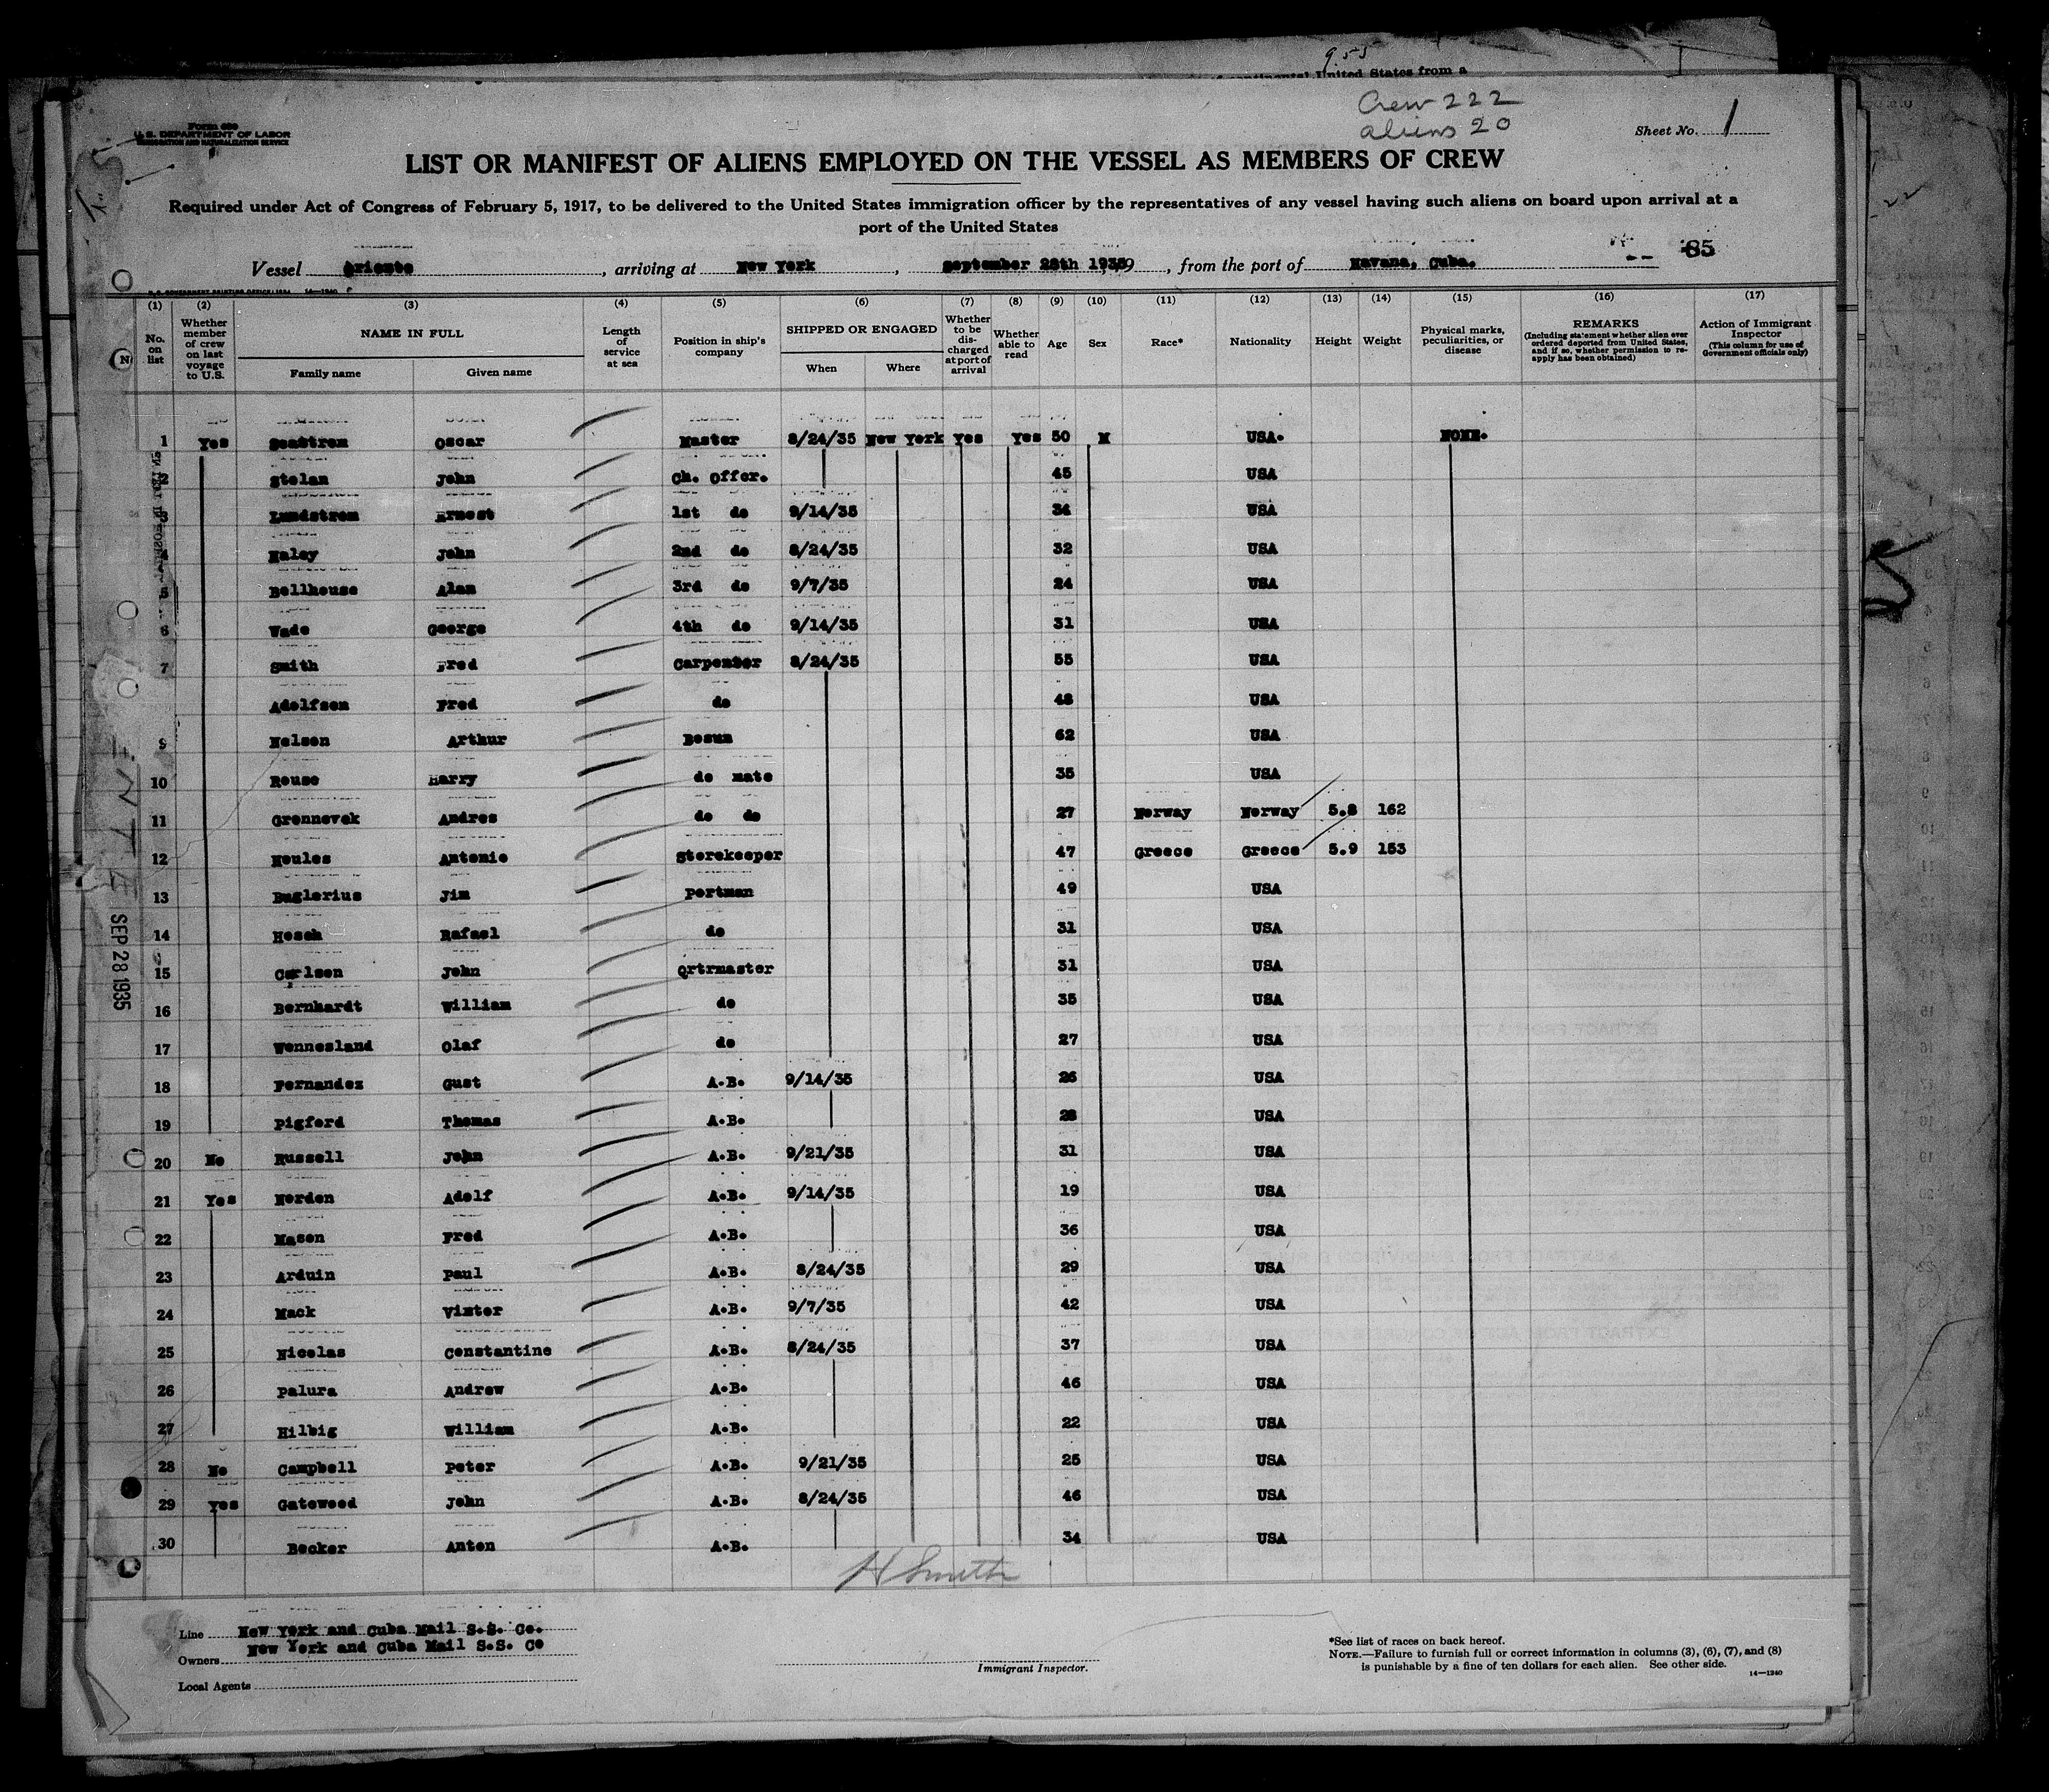 955
continental United States from a
Crew 222
aliens 20
Form 689
U. S. DEPARTMENT OF LABOR
IMMIGRATION AND NATURALIZATION SERVICE
Sheet No. 1
LIST OR MANIFEST OF ALIENS EMPLOYED ON THE VESSEL AS MEMBERS OF CREW
Required under Act of Congress of February 5, 1917, to be delivered to the United States immigration officer by the representatives of any vessel having such aliens on board upon arrival at a
port of the United States
Vessel Oriente, arriving at New York, September 28th 1935, from the port of Havana, Cuba. 85
(1) (2) (3) (4) (5) (6) (7) (8) (9) (10) (11) (12) (13) (14) (15) (16) (17)
No. on list
Whether member of crew on last voyage to U.S.
NAME IN FULL
Family name Given name
Length of service at sea
Position in ship's company
SHIPPED OR ENGAGED
When Where
Whether to be discharged at port of arrival
Whether able to read
Age
Sex
Race*
Nationality
Height
Weight
Physical marks, peculiarities, or disease
REMARKS
(Including statement whether alien ever ordered deported from United States, and if so, whether permission to reapply has been obtained)
Action of Immigrant Inspector
(This column for use of Government officials only)
1 Yes Seastrom Oscar Master 8/24/35 New York Yes Yes 50 M USA. NONE.
2 Stolan John Ch. Offer. 45 USA
3 Lundstrom Ernest 1st do 9/14/35 34 USA
4 Haley John 2nd do 8/24/35 32 USA
5 Bellhouse Alan 3rd do 9/7/35 24 USA
6 Wade George 4th do 9/14/35 31 USA
7 Smith Fred Carpenter 8/24/35 55 USA
Adolfson Fred do 48 USA
9 Nelson Arthur Bosun 62 USA
10 Rouse Harry do mate 35 USA
11 Gronnevek Andres do do 27 Norway Norway 5.8 162
12 Noules Antonio Storekeeper 47 Greece Greece 5.9 153
13 Buglerius Jim Portman 49 USA
14 Hosch Rafael do 31 USA
15 Carlson John Qrtrmaster 31 USA
16 Bernhardt William do 35 USA
17 Wennesland Olaf do 27 USA
18 Fernandez Gust A.B. 9/14/35 26 USA
19 Pigford Thomas A.B. 28 USA
20 No Russell John A.B. 9/21/35 31 USA
21 Yes Norden Adolf A.B. 9/14/35 19 USA
22 Mason Fred A.B. 36 USA
23 Arduin Paul A.B. 8/24/35 29 USA
24 Mack Vinter A.B. 9/7/35 42 USA
25 Nicolas Constantine A.B. 8/24/35 37 USA
26 Palura Andrew A.B. 46 USA
27 Hilbig William A.B. 22 USA
28 No Campbell Peter A.B. 9/21/35 25 USA
29 Yes Gatewood John A.B. 8/24/35 46 USA
30 Becker Anton A.B. 34 USA
SEP 28 1935
H Smith
Line New York and Cuba Mail S.S. Co.
Owners New York and Cuba Mail S.S. Co
Local Agents
Immigrant Inspector.
*See list of races on back hereof.
NOTE.—Failure to furnish full or correct information in columns (3), (6), (7), and (8)
is punishable by a fine of ten dollars for each alien. See other side.
14—1240